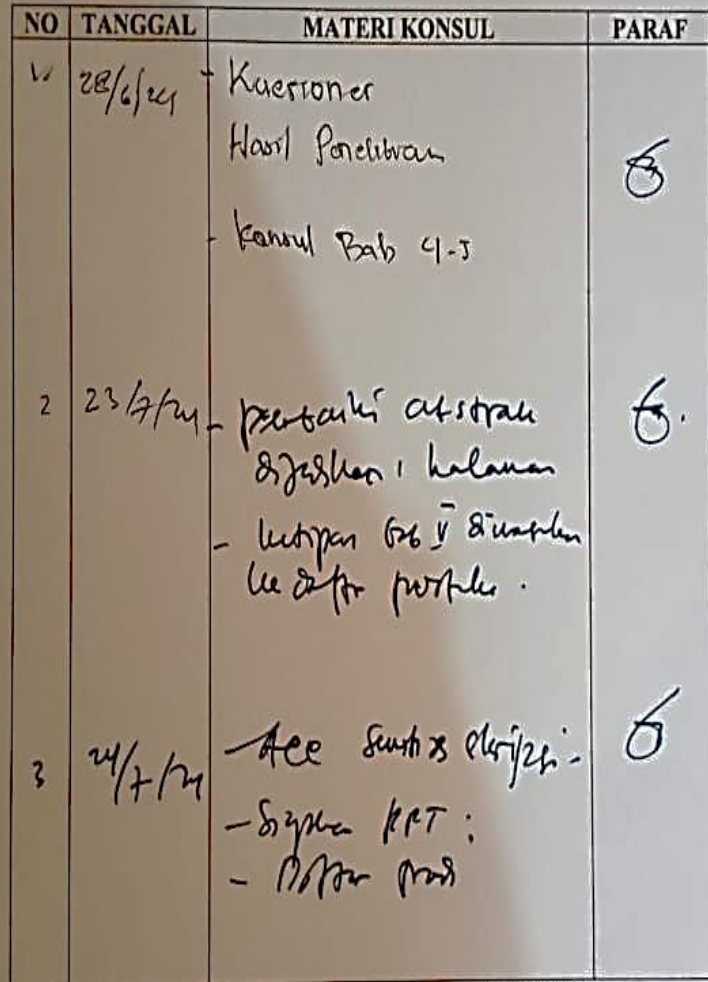 NO TANGGAL MATERI KONSUL PARAF
28/6/24 - Kuesioner
Hasil Penelitian
- Konsul Bab 4-5
2 23/7/24 - perbaiki abstrak
dijadikan 1 halaman
- kutipan bab V dimasukkan
ke daftar pustaka.
3 24/7/24 - Acc skripsi
- Siapkan PPT
- Daftar prodi